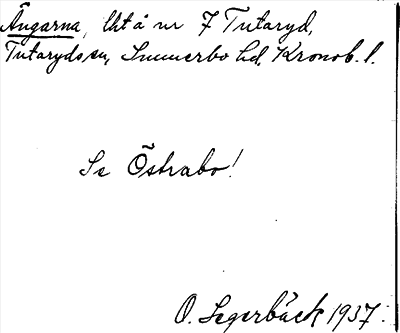 Ängarna, Utå nr 7 Tutaryd,
Tutaryds sn, Sunnerbo hd, Kronob. l.
Se Östrabo!
O. Segerbäck 1937.